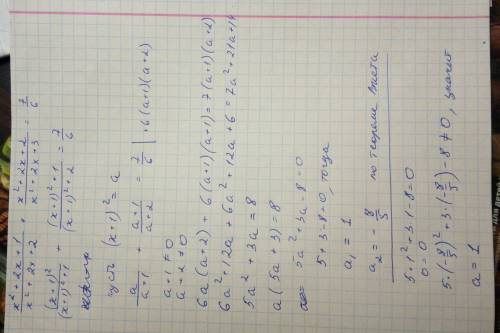 (x²+2x+1)/(x²+2x+2) + (x²+2x+2)/(x²+2x+3) = 7/6
(x+1)²/((x+1)²+1) + ((x+1)²+1)/((x+1)²+2) = 7/6
пусть (x+1)² = a
a/(a+1) + (a+1)/(a+2) = 7/6 | ·6(a+1)(a+2)
a+1≠0
a+2≠0
6a(a+2) + 6(a+1)(a+1) = 7(a+1)(a+2)
6a²+12a + 6a²+12a+6 = 7a²+21a+14
5a² + 3a = 8
a(5a+3) = 8
5a²+3a-8=0
5+3-8=0, тогда
a₁ = 1
a₂ = -8/5 по теореме Виета
5·1²+3·1-8=0
0=0
5·(-8/5)²+3·(-8/5)-8≠0, значит
a = 1